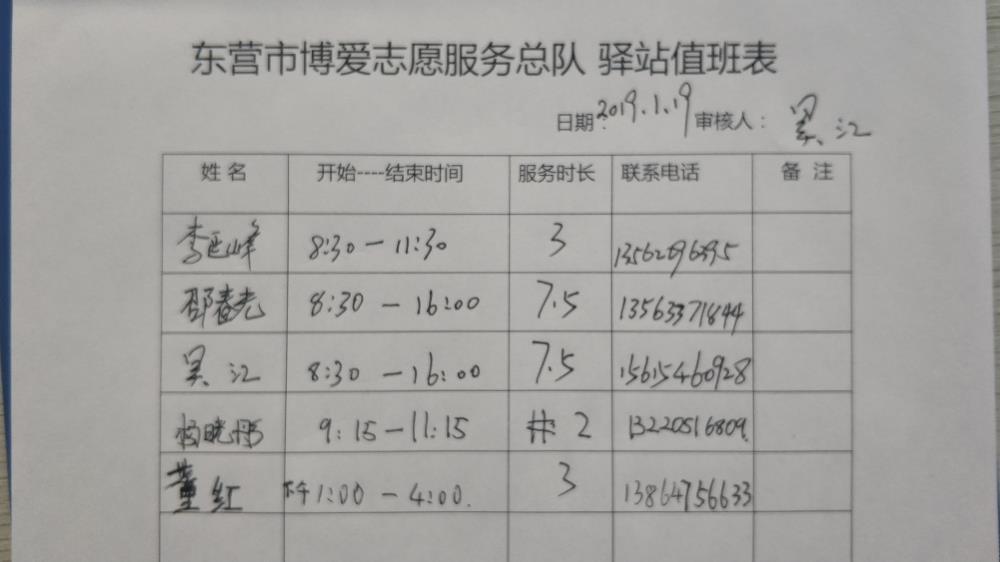 东营市博爱志愿服务总队 驿站值班表
日期: 2019.1.19 审核人: 吴江
姓名 开始----结束时间 服务时长 联系电话 备注
李延峰 8:30 — 11:30 3
邵春光 8:30 — 16:00 7.5 13563371844
吴江 8:30 — 16:00 7.5 15615460928
杨晓 9:15 — 11:15 2 13220516809
董红 下午1:00 — 4:00. 3 13864756633